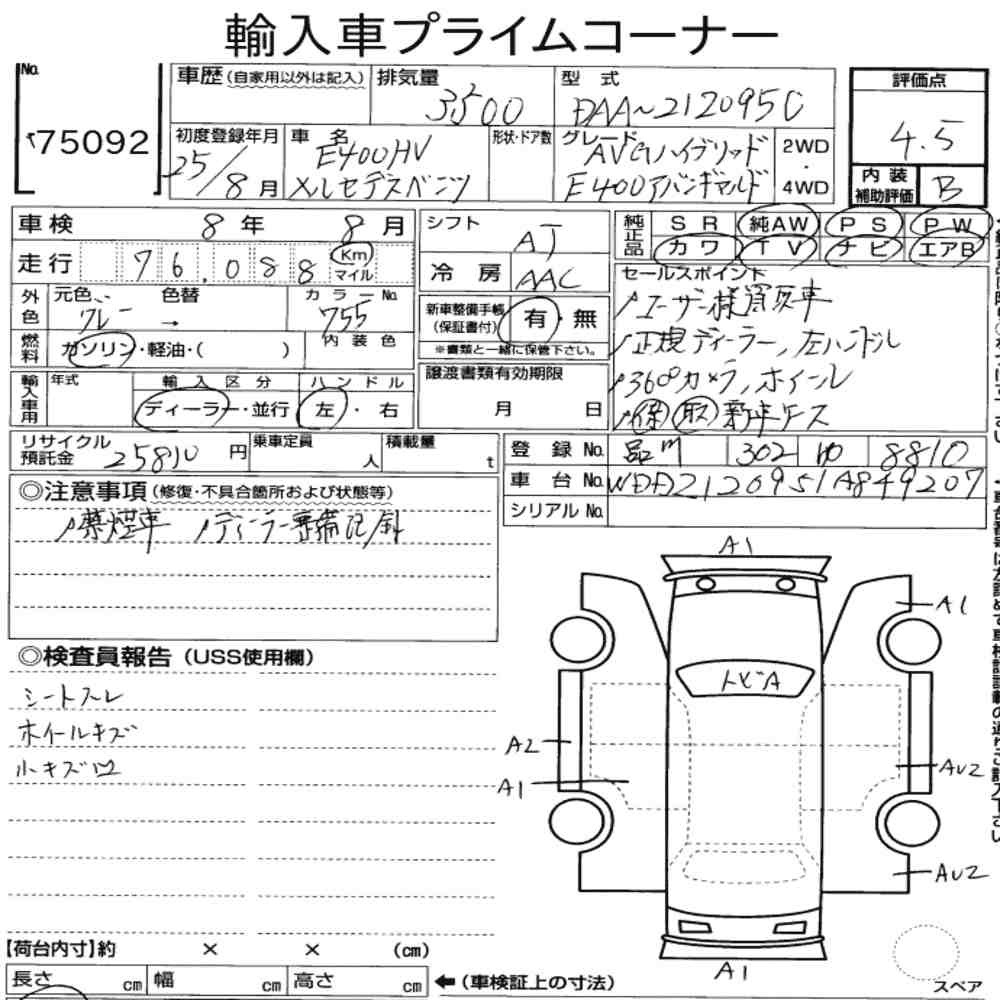 輸入車プライムコーナー
No. 75092
車歴(自家用以外は記入)
排気量 3500
型式 DAA~212095C
初度登録年月 25/8月
車名 E400HV メルセデスベンツ
形状・ドア数
グレード AVGハイブリッド E400アバンギャルド
2WD・4WD
評価点 4.5
内装補助評価 B
車検 8年 8月
走行 76,088 Km マイル
外色 元色 グレー → 色替
カラーNo. 755
燃料 ガソリン・軽油・( )
内装色
輸入車用 年式
輸入区分 ディーラー・並行
ハンドル 左・右
リサイクル預託金 25810円
乗車定員 人
積載量 t
シフト AT
冷房 AAC
新車整備手帳(保証書付) 有・無
※書類と一緒に保管下さい。
譲渡書類有効期限
月 日
純正品 SR 純AW PS PW
カワ TV ナビ エアB
セールスポイント
ユーザー様買取車
正規ディーラー,左ハンドル
360°カメラ,ホイール
保 取 新車ケース
登録No. 品川 302 ゆ 8810
車台No. WDD2120951A849207
シリアルNo.
◎注意事項(修復・不具合箇所および状態等)
禁煙車 ディーラー整備記録
◎検査員報告(USS使用欄)
シートスレ
ホイールキズ
小キズ凹
A1
A1
トビA
A2
A1
AU2
AU2
A1
スペア
【荷台内寸】約 × × (cm)
長さ cm 幅 cm 高さ cm
←(車検証上の寸法)